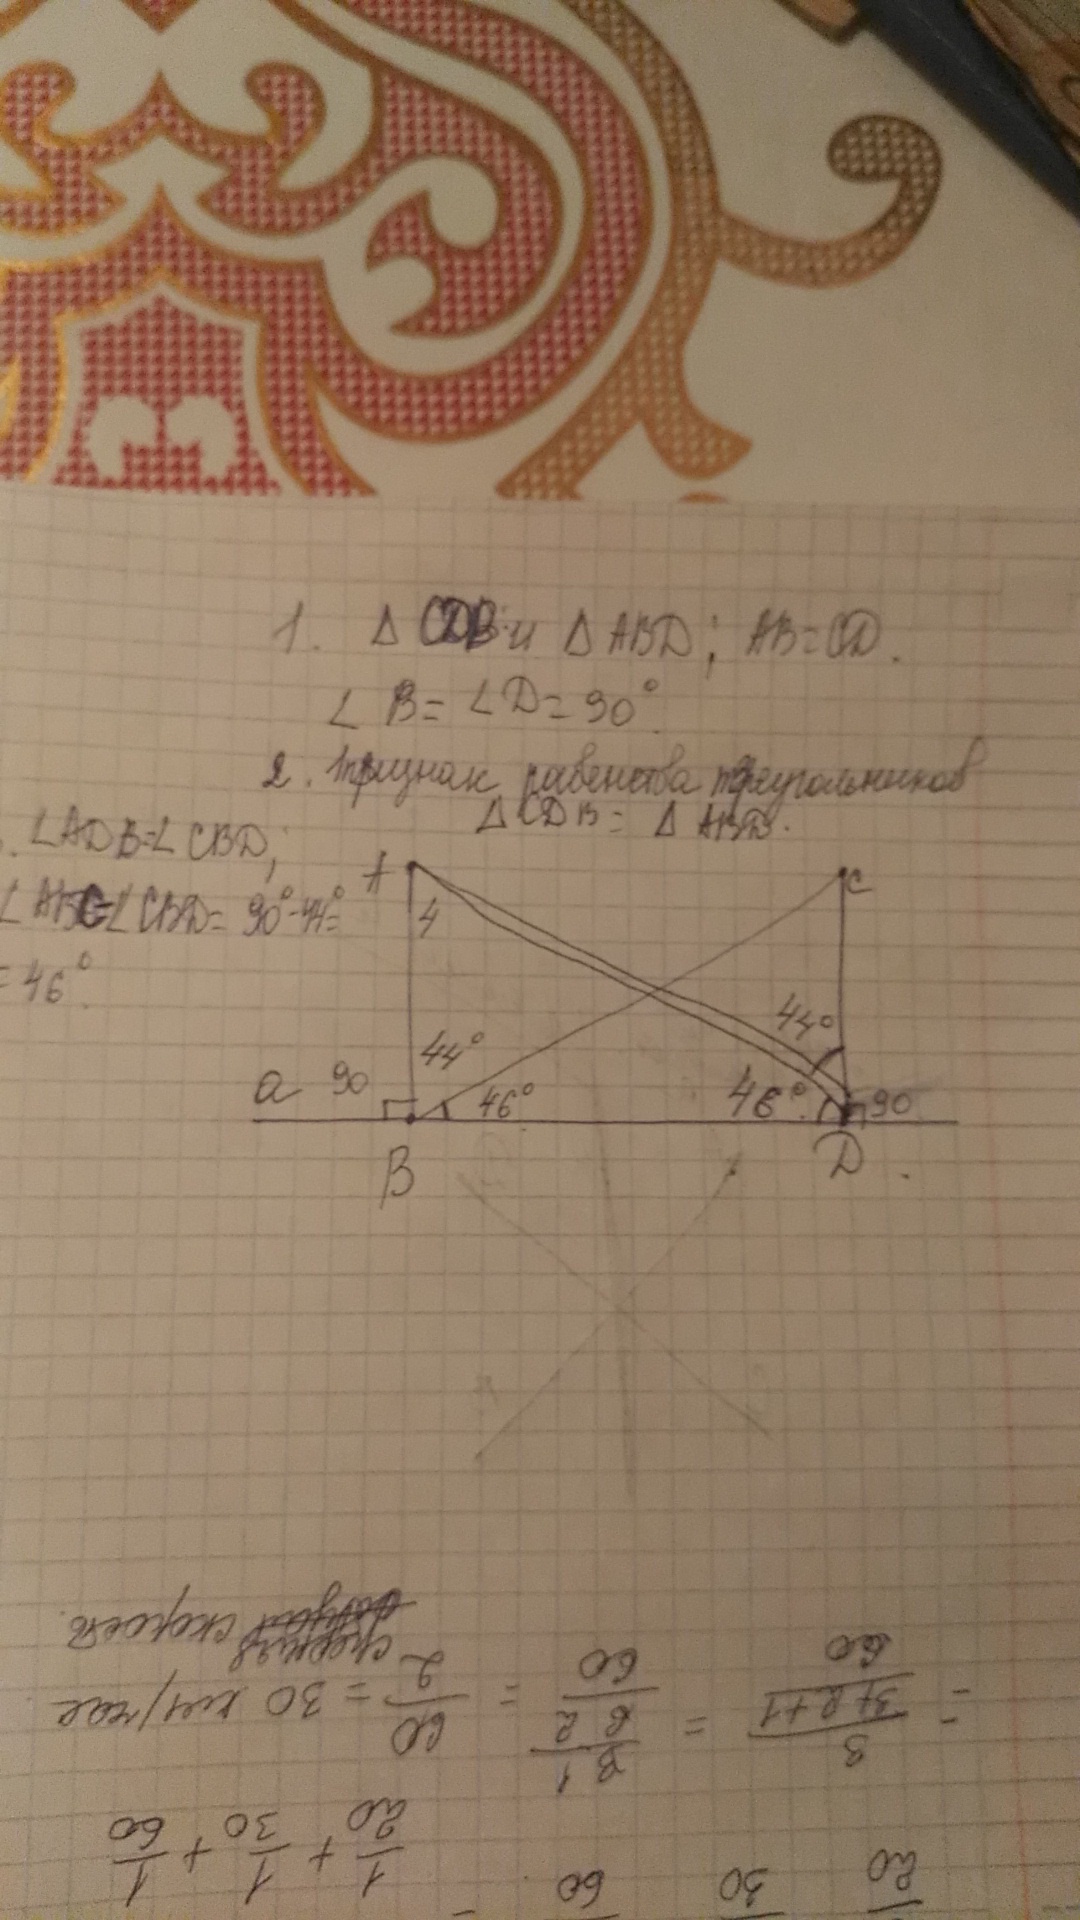 1. Δ CDB и Δ ABD; AB=CD.
∠ B= ∠ D= 90°
2. Признак равенства треугольников
Δ CDB = Δ ABD.
. ∠ADB=∠ CBD;
∠ ABC=∠ CBD= 90°-44°=
= 46°.
A
C
4
44°
44°
a 90
46°
46°
90
B
D.
1/20 + 1/30 + 1/60
= 3/((3+2+1)/60) = 3 1/(6 2/60) = 60/2 = 30 км/час
средняя скорость.
20
30
60